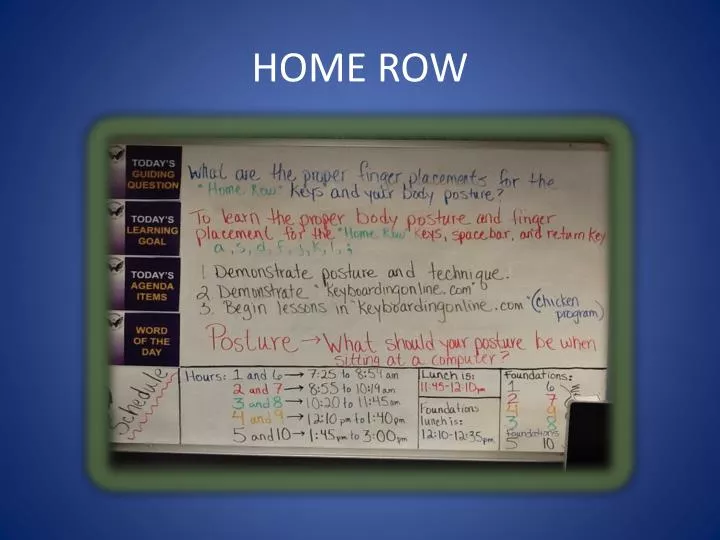 HOME ROW
TODAY'S
GUIDING
QUESTION
What are the proper finger placements for the
"Home Row" keys and your body posture?
TODAY'S
LEARNING
GOAL
To learn the proper body posture and finger
placement for the "Home Row" keys, spacebar, and return key
a, s, d, f, j, k, l, ;
TODAY'S
AGENDA
ITEMS
1. Demonstrate posture and technique.
2. Demonstrate "keyboardingonline.com"
3. Begin lessons in "keyboardingonline.com" (chicken
program)
WORD
OF THE
DAY
Posture → What should your posture be when
sitting at a computer?
Schedule
Hours: 1 and 6 → 7:25 to 8:51 am
2 and 7 → 8:55 to 10:19 am
3 and 8 → 10:20 to 11:45 am
4 and 9 → 12:10 pm to 1:40 pm
5 and 10 → 1:45 pm to 3:00 pm
Lunch is:
11:45-12:10 pm
Foundations
lunch is:
12:10-12:35 pm
Foundations:
1 6
2 7
4 9
3 8
Foundations
5 10